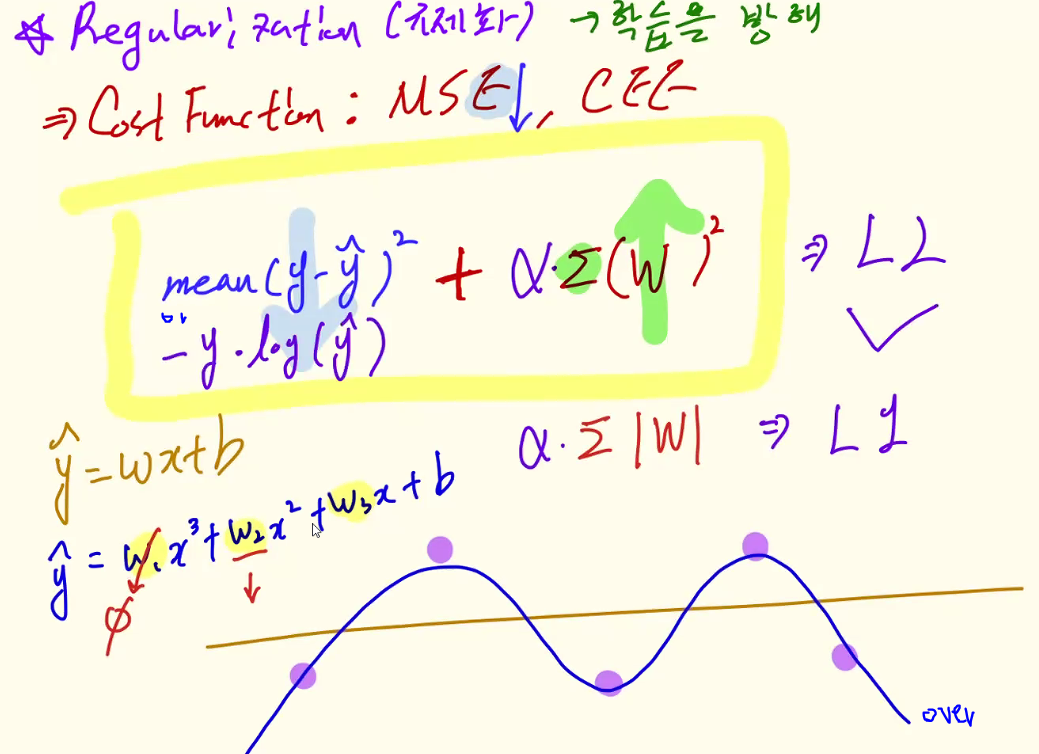 ☆ Regularization (규제화) → 학습을 방해
⇒ Cost Function : MSE↓, CEE
mean(y-ŷ)² + α·Σ(W)² ⇒ L2
or
-y·log(ŷ)
α·Σ|W| ⇒ L1
ŷ = wx+b
ŷ = w₁x³+w₂x²+w₃x+b
φ
over